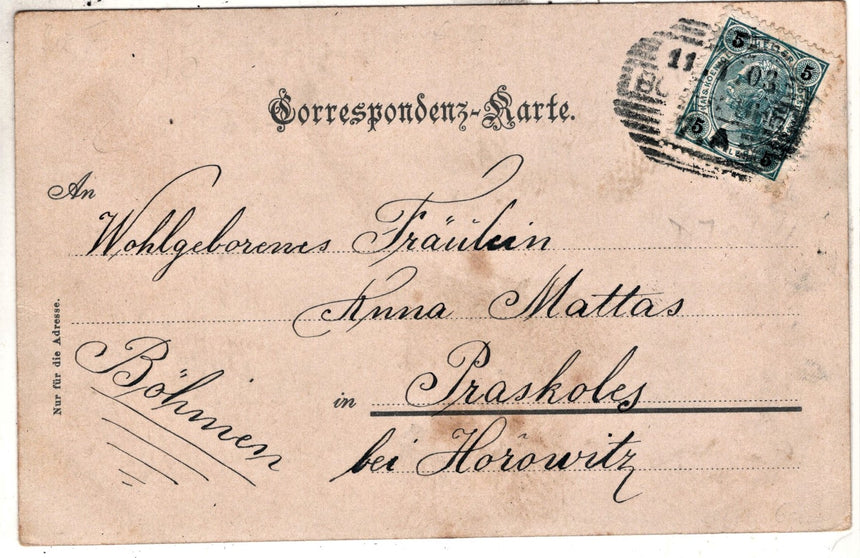 Correspondenz-Karte.
5
5
5
5
11
03
A
An
Wohlgeborenes Fräulein
Anna Mattas
Nur für die Adresse.
Böhmen
in Praskoles
bei Horowitz